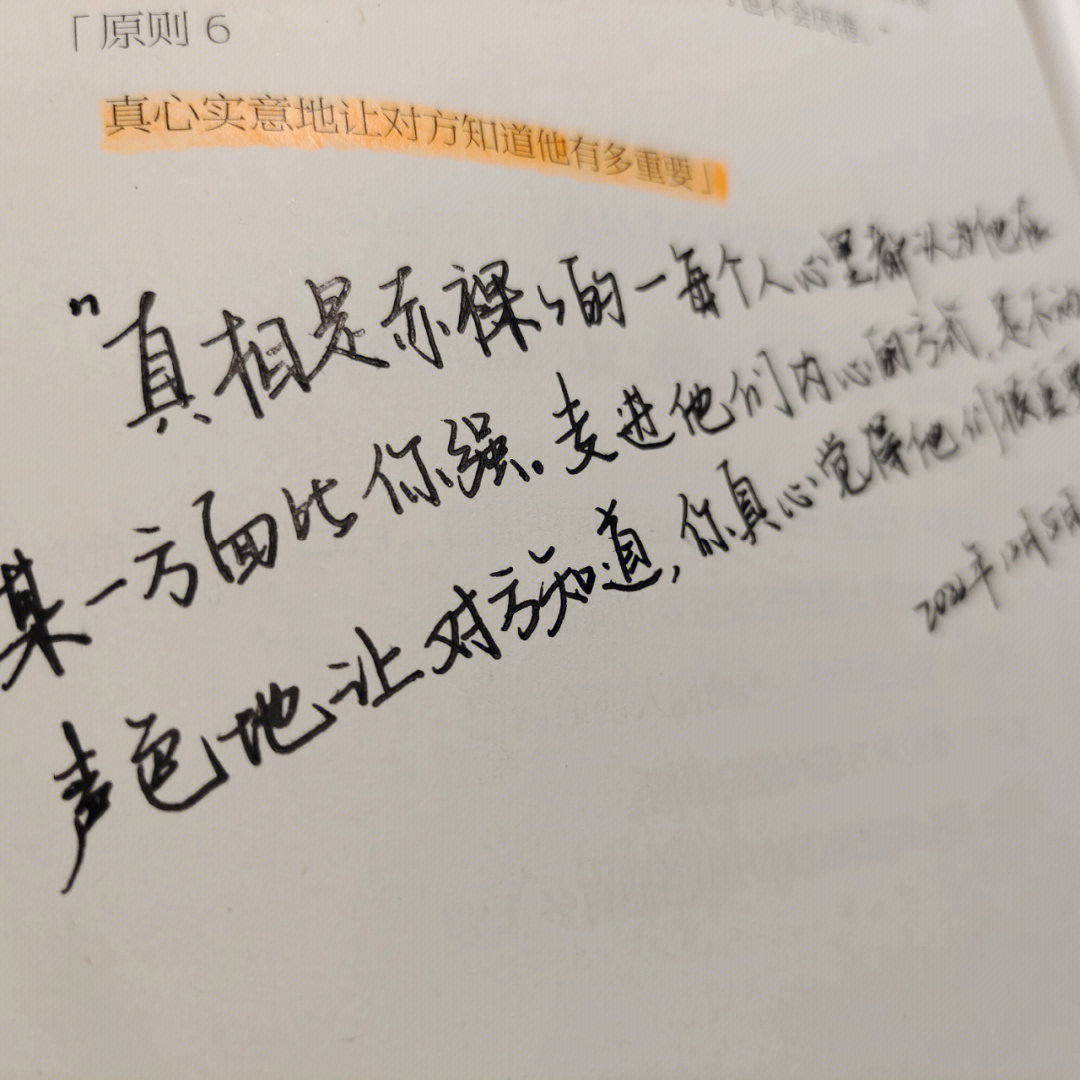 「原则 6
真心实意地让对方知道他有多重要」
"真相是赤裸々的一每个人心里都认为他在
某一方面比你强。走进他们内心的方式，是不动
声色地让对方知道，你真心觉得他们很重要